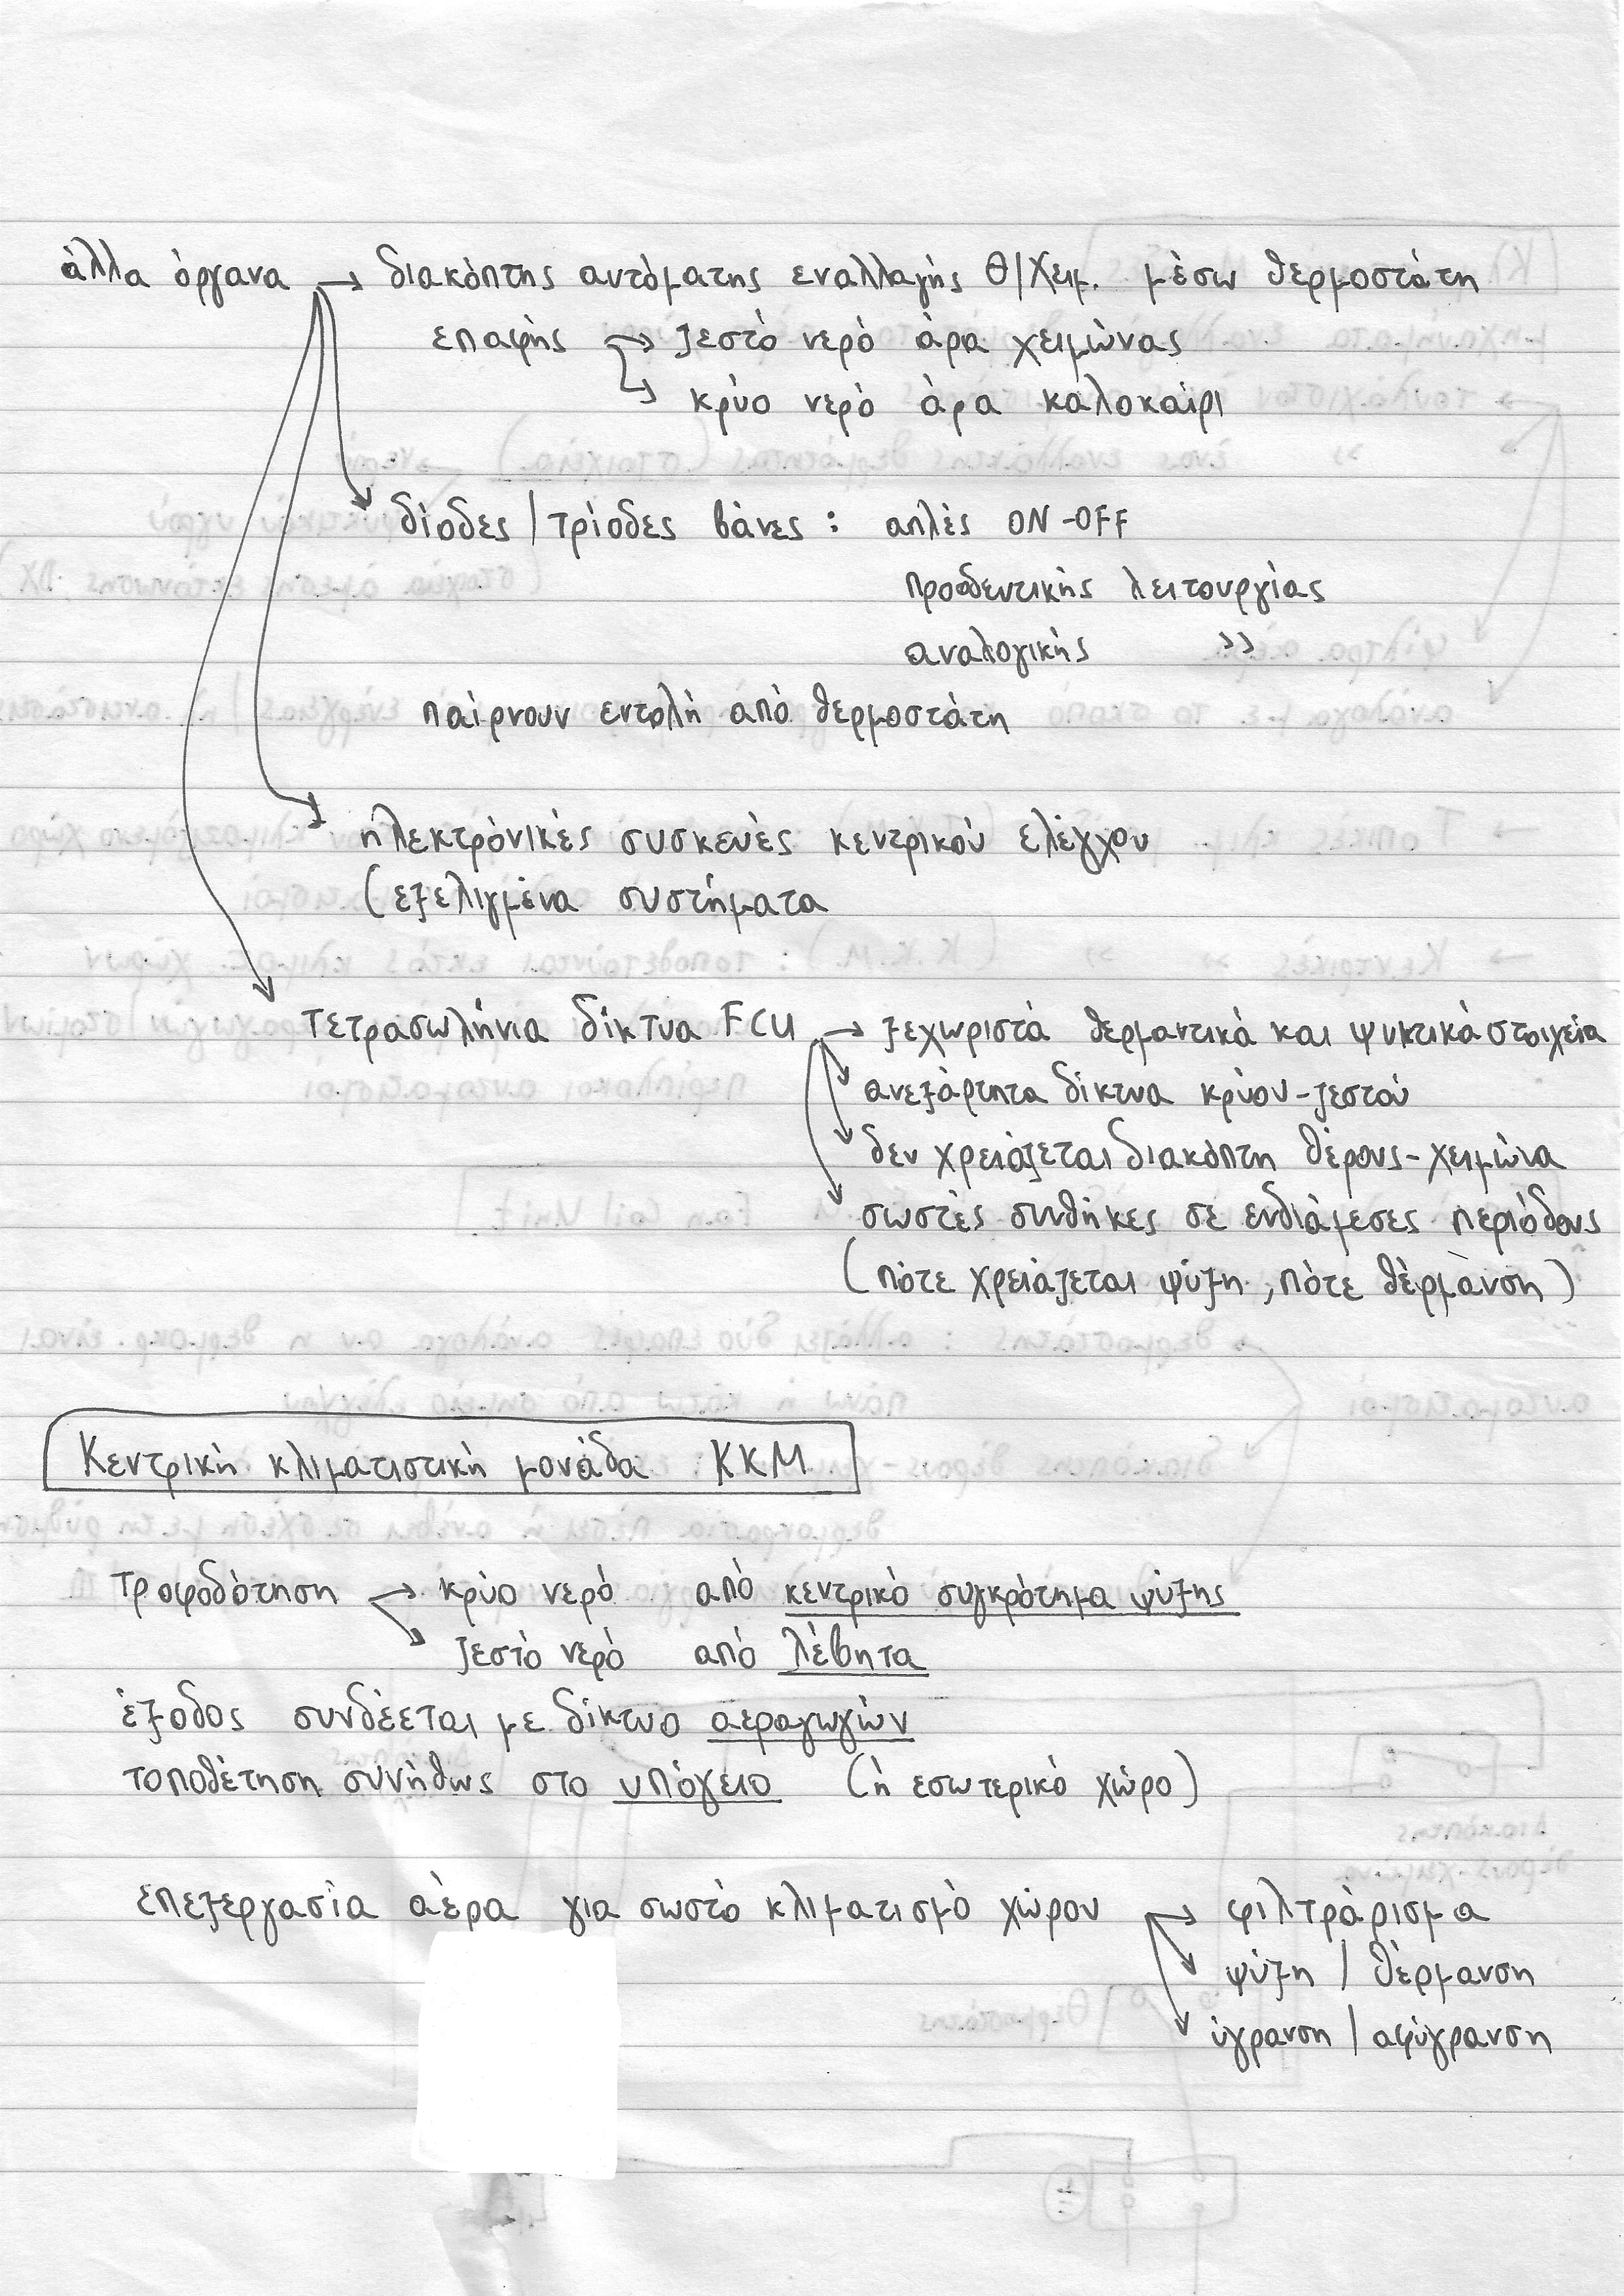 άλλα όργανα → διακόπτης αυτόματης εναλλαγής Θ/Χειμ. μέσω θερμοστάτη
επαφής → ζεστό νερό άρα χειμώνας
→ κρύο νερό άρα καλοκαίρι
→ δίοδες / τρίοδες βάνες : απλές ON-OFF
προοδευτικής λειτουργίας
αναλογικής >>
παίρνουν εντολή από θερμοστάτη
→ ηλεκτρονικές συσκευές κεντρικού ελέγχου
(εξελιγμένα συστήματα
→ τετρασωλήνια δίκτυα FCU → ξεχωριστά θερμαντικά και ψυκτικά στοιχεία
→ ανεξάρτητα δίκτυα κρύου-ζεστού
→ δεν χρειάζεται διακόπτη θέρους-χειμώνα
→ σωστές συνθήκες σε ενδιάμεσες περιόδους
(πότε χρειάζεται ψύξη, πότε θέρμανση)
Κεντρική κλιματιστική μονάδα ΚΚΜ
τροφοδότηση → κρύο νερό από κεντρικό συγκρότημα ψύξης
→ ζεστό νερό από λέβητα
έξοδος συνδέεται με δίκτυο αεραγωγών
τοποθέτηση συνήθως στο υπόγειο (ή εσωτερικό χώρο)
επεξεργασία αέρα για σωστό κλιματισμό χώρου → φιλτράρισμα
→ ψύξη / θέρμανση
→ ύγρανση / αφύγρανση